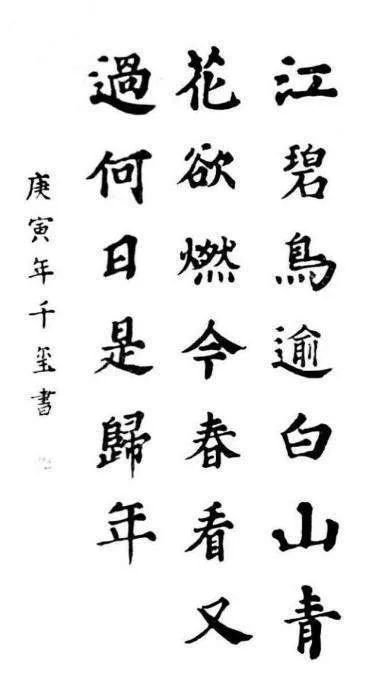 江碧鳥逾白山青
花欲燃今春看又
過何日是歸年
庚寅年千璽書